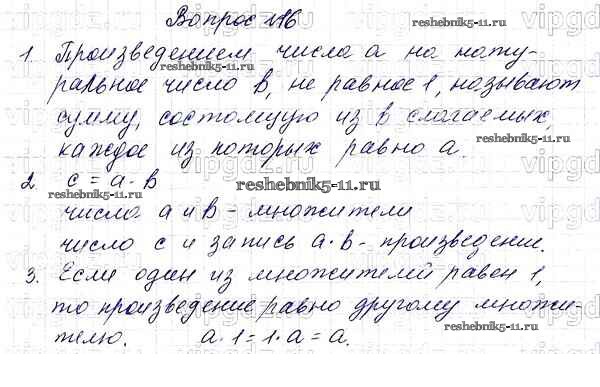 Вопрос №16
reshebnik5-11.ru
1. Произведением числа а на нату-
reshebnik5-11.ru
ральное число в, не равное 1, называют
сумму, состоящую из в слагаемых,
reshebnik5-11.ru
каждое из которых равно а.
2 с = а · в
reshebnik5-11.ru
числа а и в - множители
число с и запись а·в - произведение.
reshebnik5-11.ru
3. Если один из множителей равен 1,
то произведение равно другому множи-
reshebnik5-11.ru
телю. а·1=1·а=а.